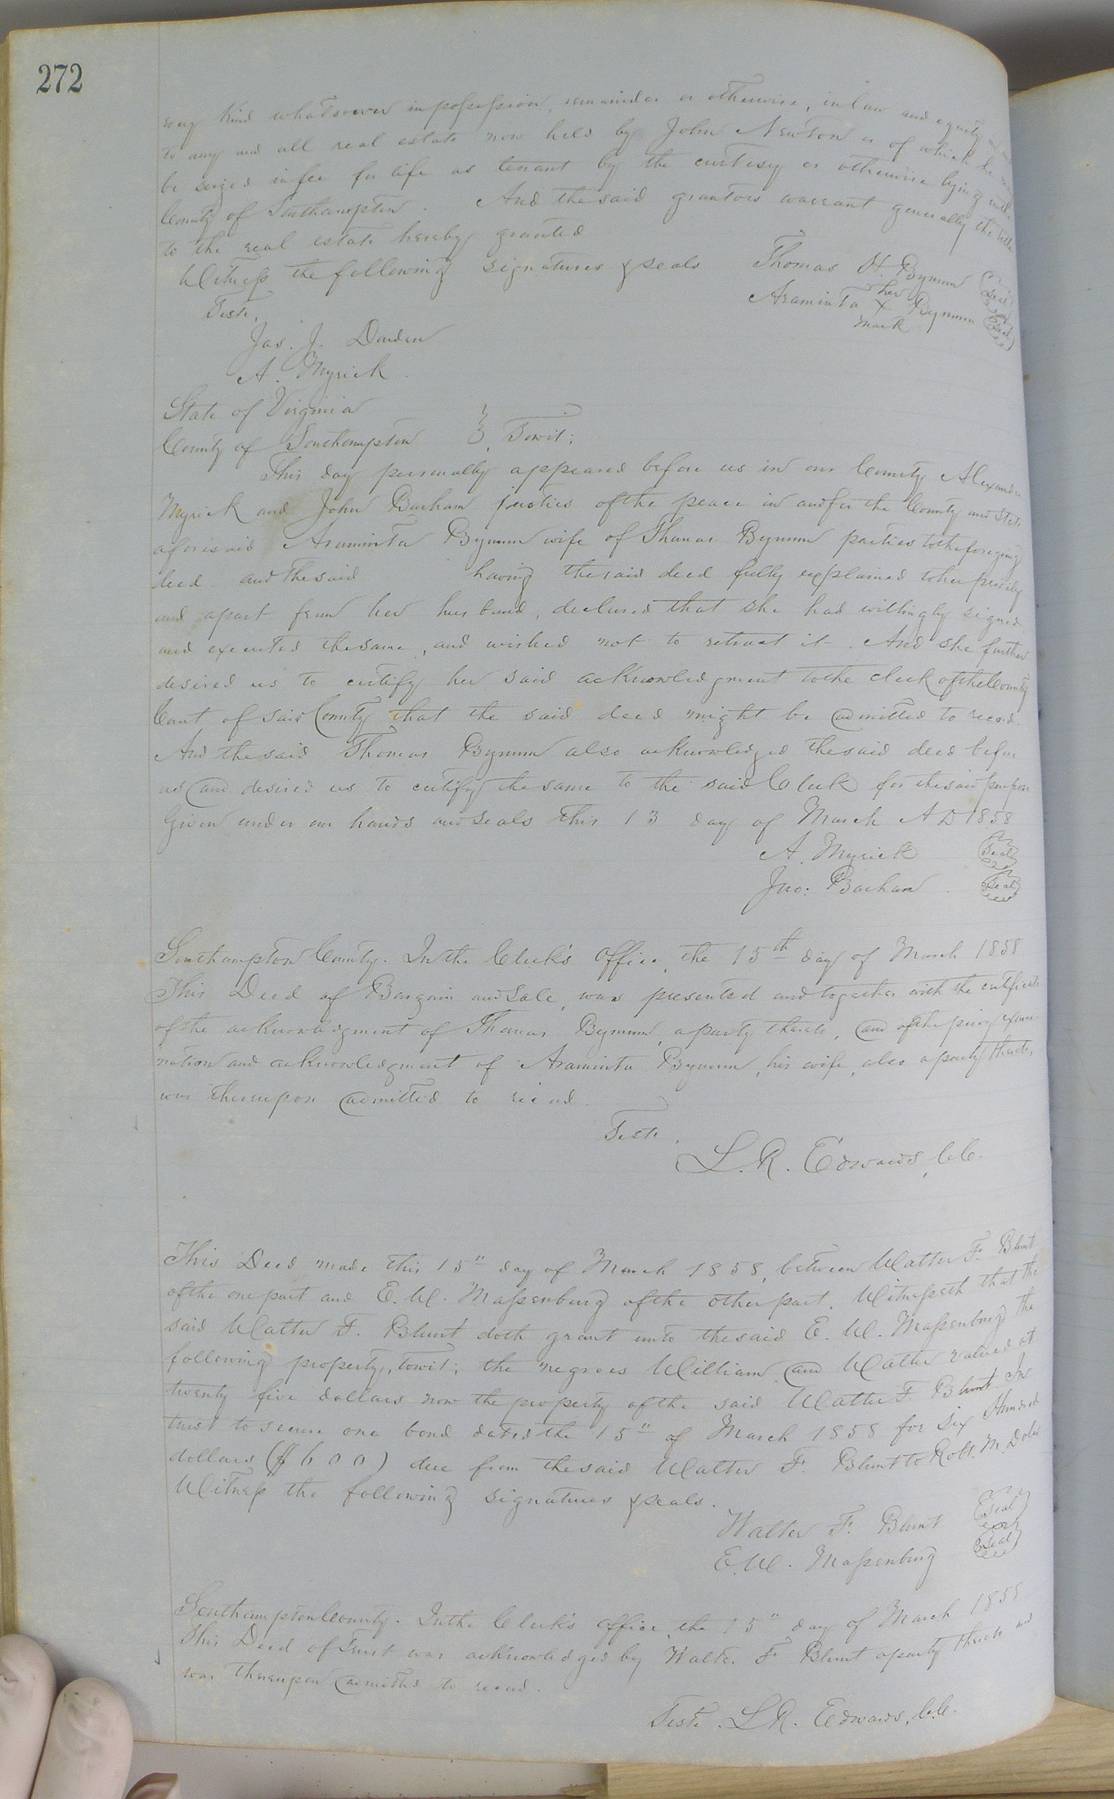 272
way kind whatsoever in possession, remainder or otherwise, in law and equity
to any and all real estate now held by John Newton or of which he may
be seized in fee for life as tenant by the curtesy or otherwise lying in the
County of Southampton. And the said grantors warrant generally the title
to the real estate hereby granted
Witness the following signatures & seals Thomas H. Bynum Seal
Araminta her X mark Bynum Seal
Teste,
Jas. J. Darden
A. Myrick
State of Virginia
County of Southampton } Towit;
This day personally appeared before us in our County Alexander
Myrick and John Barham justices of the peace in and for the County and State
aforesaid Araminta Bynum wife of Thomas Bynum parties to the foregoing
deed and the said having the said deed fully explained to her privily
and apart from her husband, declared that she had willingly signed
and executed the same, and wished not to retract it. And she further
desired us to certify her said acknowledgment to the clerk of the County
Court of said County that the said deed might be admitted to record.
And the said Thomas Bynum also acknowledged the said deed before
us and desired us to certify the same to the said Clerk for the said purpose
Given under our hands and seals this 13 day of March AD 1858
A. Myrick Seal
Jno: Barham Seal
Southampton County. In the Clerk's Office, the 15th day of March 1858
This Deed of Bargain and Sale, was presented and together with the certificate
of the acknowledgment of Thomas Bynum, a party thereto, and of the privy exami-
nation and acknowledgment of Araminta Bynum, his wife, also a party thereto,
was thereupon admitted to record.
Teste,
L. R. Edwards, C.C.
This Deed made this 15" day of March 1858, between Walter F. Blunt
of the one part and E. W. Massenburg of the other part. Witnesseth that the
said Walter F. Blunt doth grant unto the said E. W. Massenburg the
following property, towit; the negroes William and Walter valued at
twenty five dollars now the property of the said Walter F. Blunt In
trust to secure one bond dated the 15" of March 1858 for six Hundred
dollars ($600) due from the said Walter F. Blunt to Robt. M.
Witness the following signatures & seals.
Walter F. Blunt Seal
E. W. Massenburg Seal
Southampton County. In the Clerk's office, the 15" day of March 1858
This Deed of Trust was acknowledged by Walter F Blunt a party thereto and
was thereupon admitted to record.
Teste. L. R. Edwards, C.C.